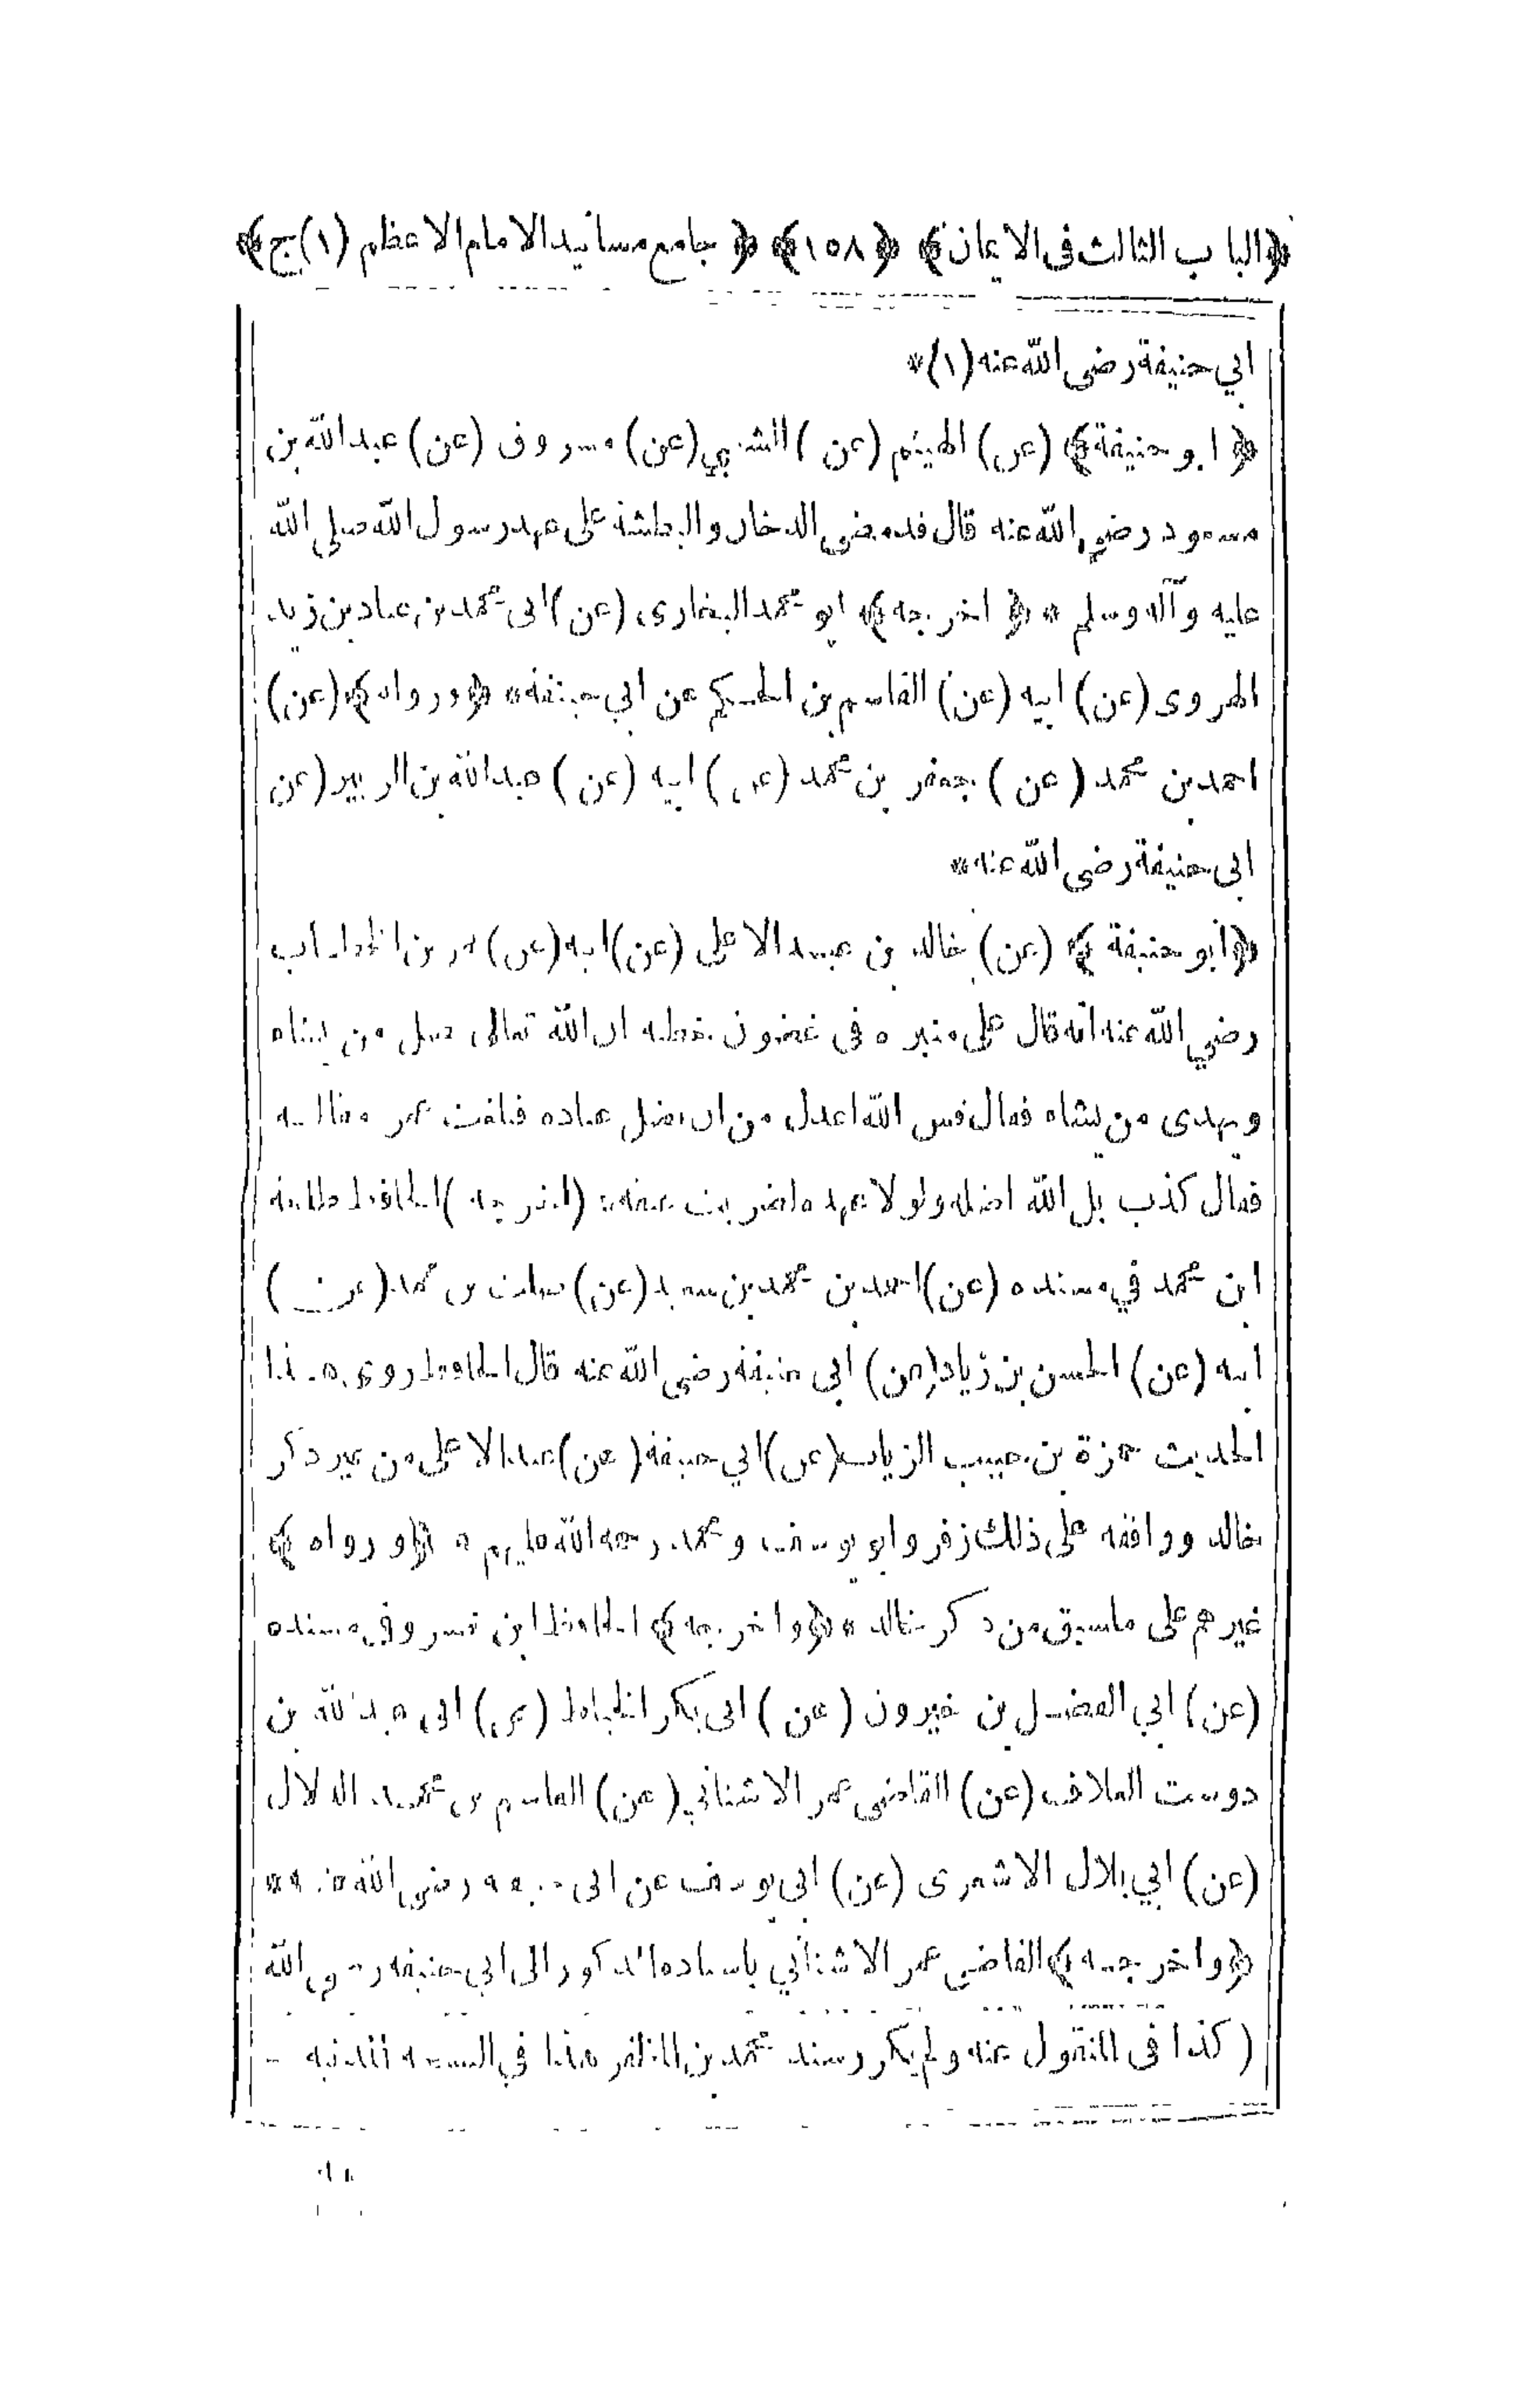 ﴿الباب الثالث فى الايمان﴾ ﴿١٥٨﴾ ﴿ جامع مسانيد الامام الاعظم (١)ج﴾
ابي حنيفة رضى الله عنه (١)*
﴿ ابو حنيفة﴾ (عن) الهيثم (عن) الشعبي (عن) مسروق (عن) عبدالله بن
مسعود رضي الله عنه قال قدمضى الدخان والبطشة على عهد رسول الله صلى الله
عليه وآله وسلم * ﴿ اخرجه﴾ ابو محمد البخارى (عن) ابى محمد بن عباد بن زيد
الهروى (عن) ابيه (عن) القاسم بن الحكم عن ابي حنيفة* ﴿ورواه﴾ (عن)
احمد بن محمد (عن) جعفر بن محمد (عن) ابيه (عن) عبدالله بن الزبير (عن
ابى حنيفة رضى الله عنه*
﴿ابو حنيفة ﴾ (عن) خالد بن عبد الاعلى (عن) ابيه (عن) عمر بن الخطاب
رضي الله عنه انه قال على منبره فى غضون خطبه ان الله تعالى يضل من يشاء
ويهدى من يشاء فقال قس الله اعدل من ان يضل عباده فبلغت عمر مقالته
فقال كذب بل الله اضله ولولا عهده لضربت عنقه* (اخرجه) الحافظ طلحة
ابن محمد في مسنده (عن) احمد بن محمد بن سعيد (عن) بن محمد (عن)
ابيه (عن) الحسن بن زياد (عن) ابى حنيفة رضي الله عنه قال الحافظ روى هذا
الحديث حمزة بن حبيب الزيات (عن) ابي حنيفة (عن) عبدالاعلى من غير ذكر
خالد ووافقه على ذلك زفر وابو يوسف ومحمد رحمه الله عليهم * ﴿ورواه ﴾
غيرهم على ماسبق من ذكر خالد * ﴿واخرجه﴾ الحافظ ابن خسرو فى مسنده
(عن) ابي الفضل بن خيرون (عن) ابى بكر الخياط (عن) ابى عبدالله بن
دوست العلاف (عن) القاضى عمر الاشناني (عن) القاسم بن محمد الدلال
(عن) ابي بلال الاشعرى (عن) ابى يوسف عن ابى حنيفة رضي الله عنه *
﴿واخرجه﴾ القاضى عمر الاشناني باسناده المذكور الى ابي حنيفة رضى الله
( كذا فى المنقول عنه ولم يكن مسند محمد بن المظفر هذا في النسخة القديمة -